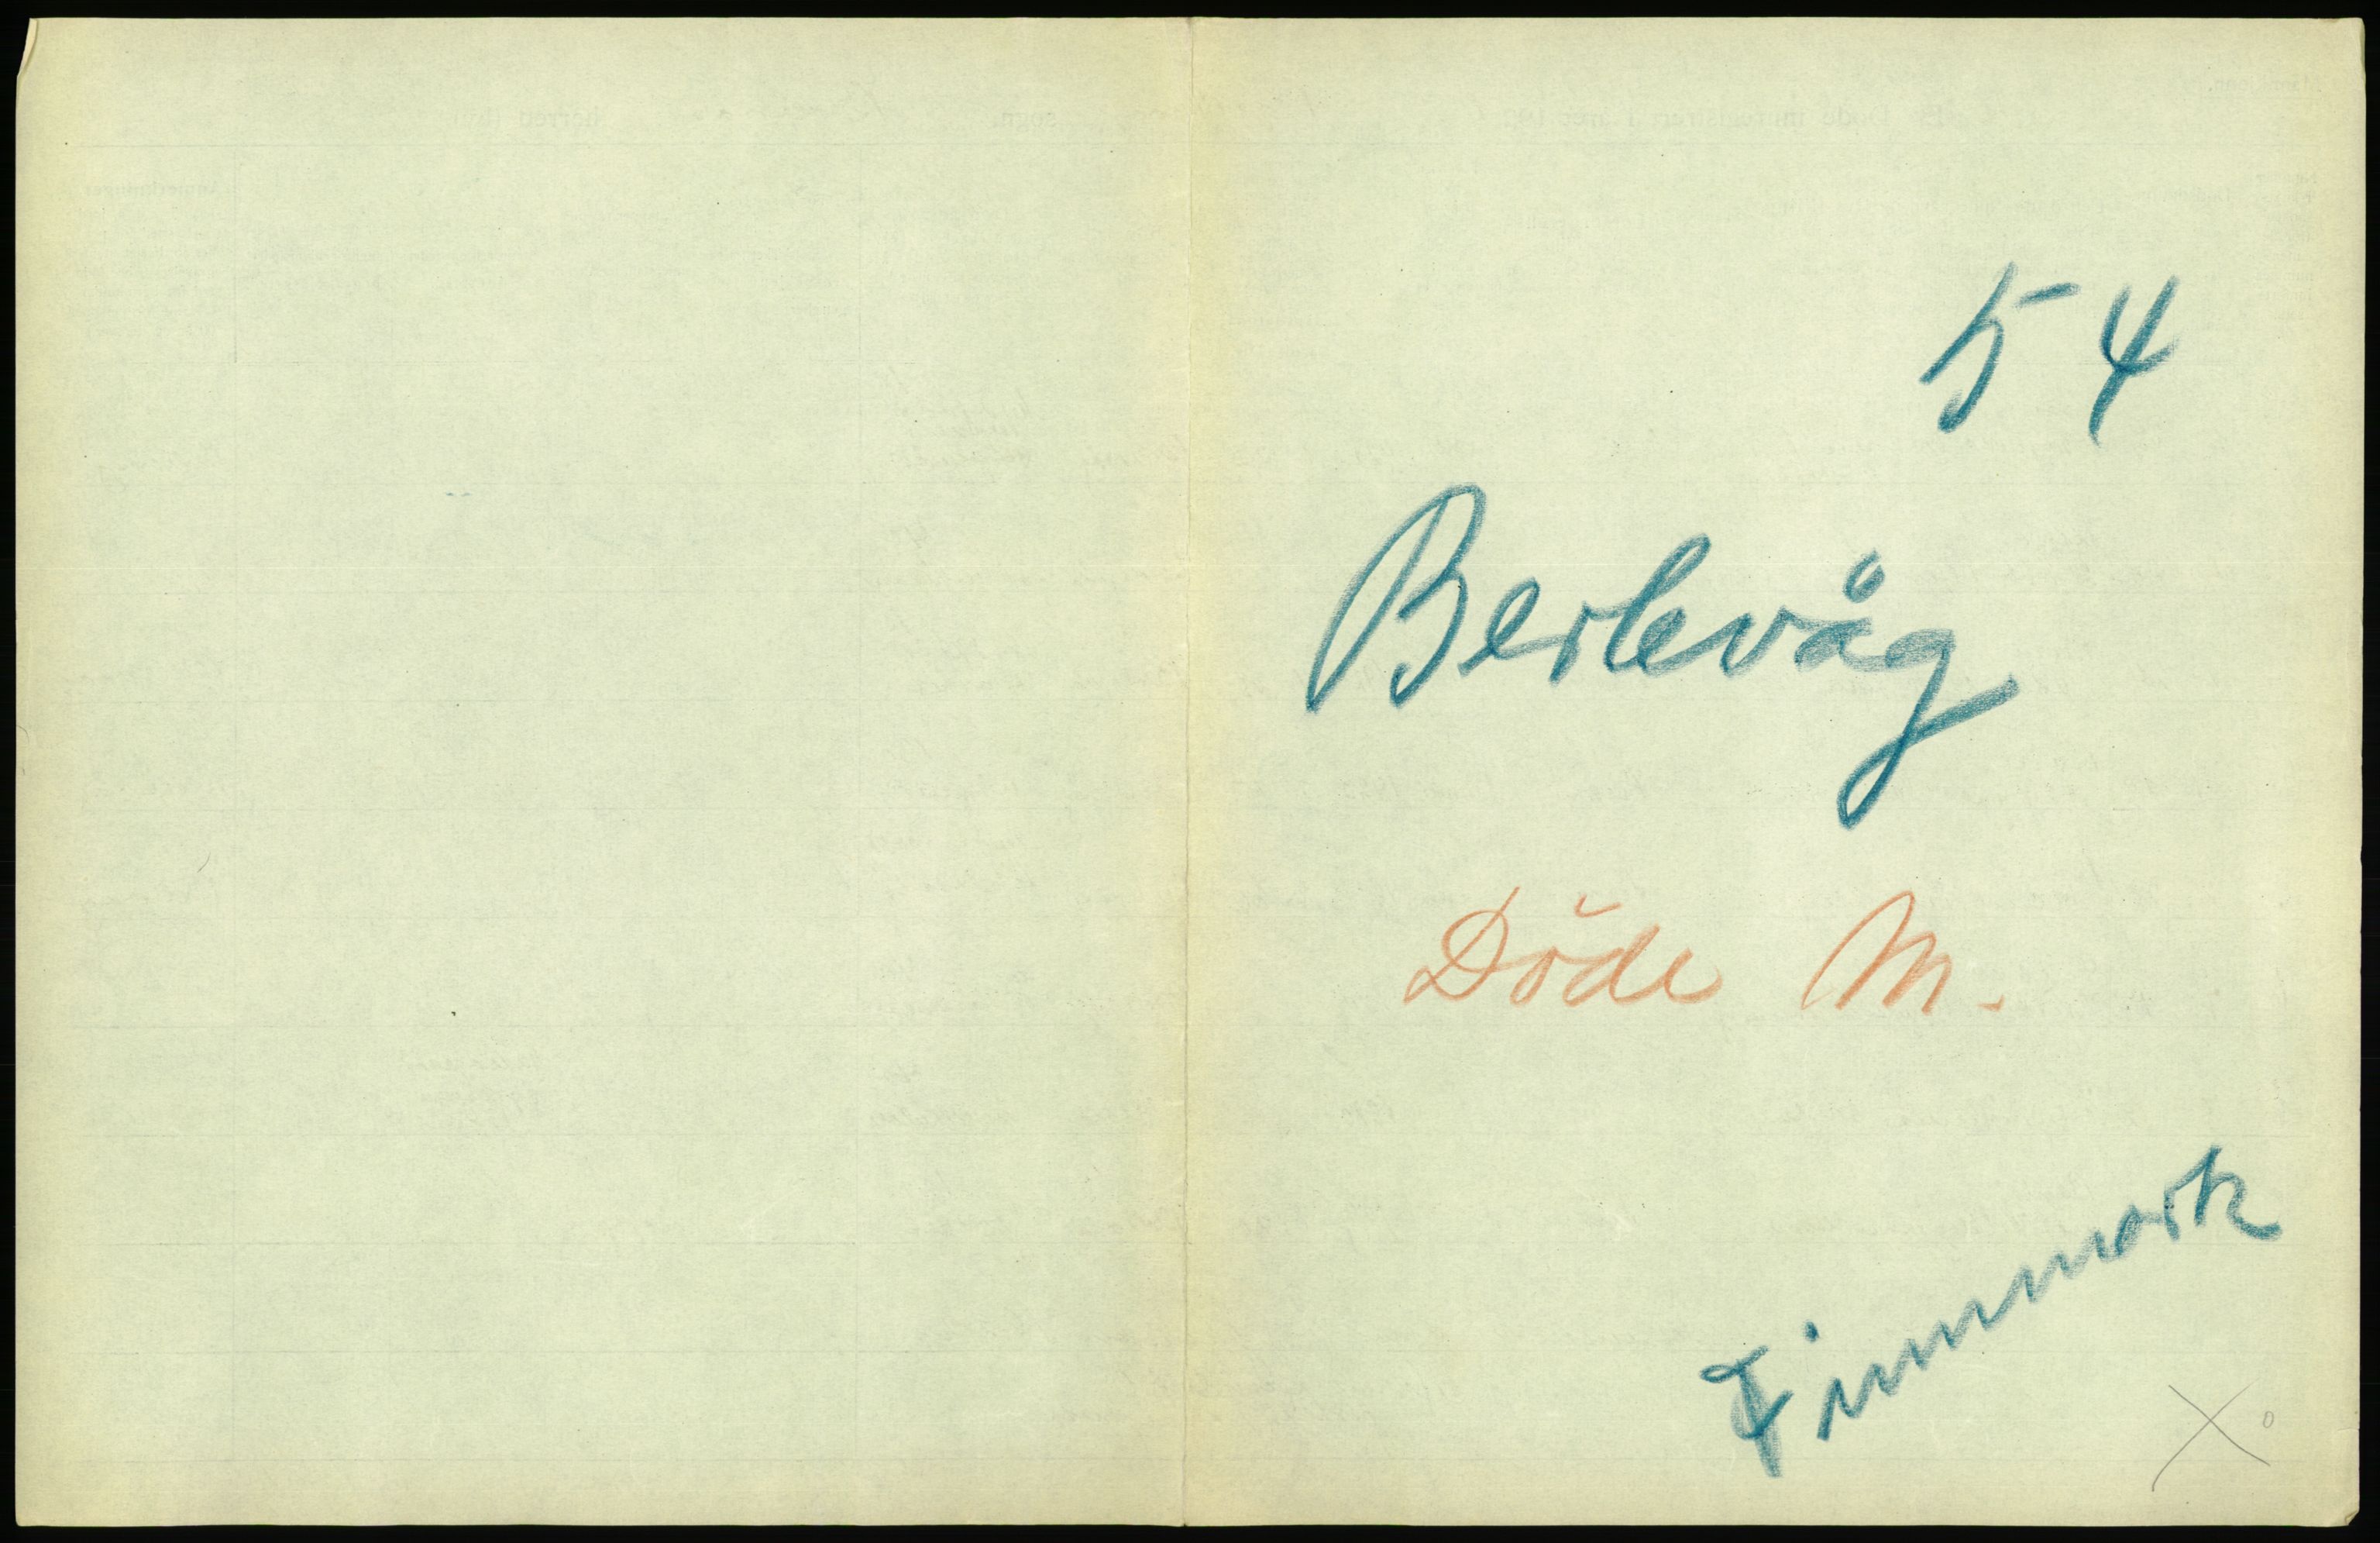 54
Berlevåg
Döde M.
Finnmark
X 0